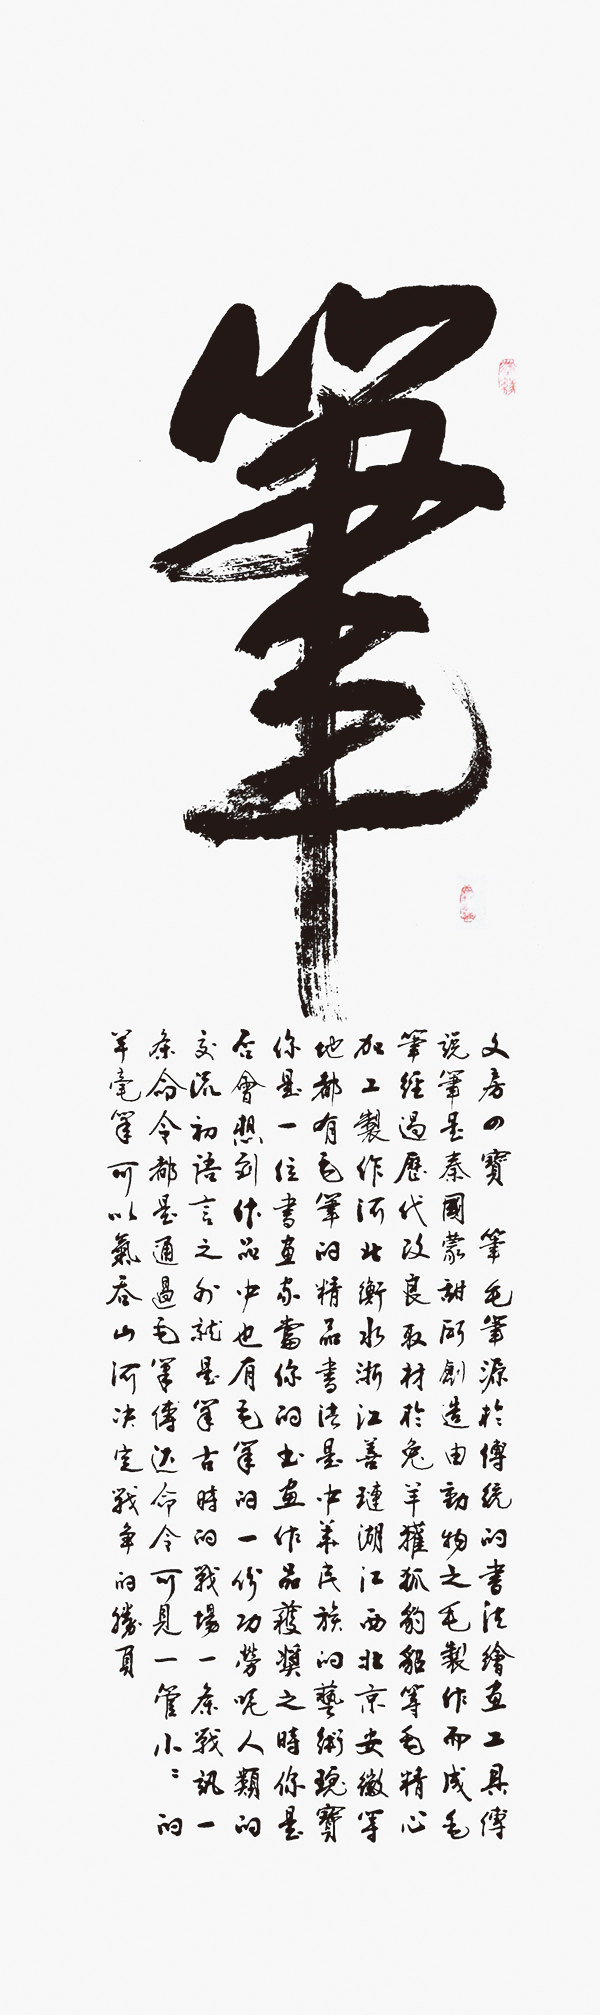 筆
文房四寶 筆毛筆源於傳統的書法繪畫工具傳
說筆是秦國蒙甜所創造由動物之毛製作而成毛
筆經過歷代改良取材於兔羊獾狐豹貂等毛精心
加工製作河北衡水浙江善璉湖江西北京安徽等
地都有毛筆的精品書法是中華民族的藝術瑰寶
你是一位書画家當你的书画作品獲獎之時你是
否會想到作品中也有毛筆的一份功勞呢人類的
交流初語言之外就是筆古時的戰場一条戰訊一
条命令都是通過毛筆傳达命令可見一管小〻的
羊毫筆可以氣吞山河决定戰争的勝負